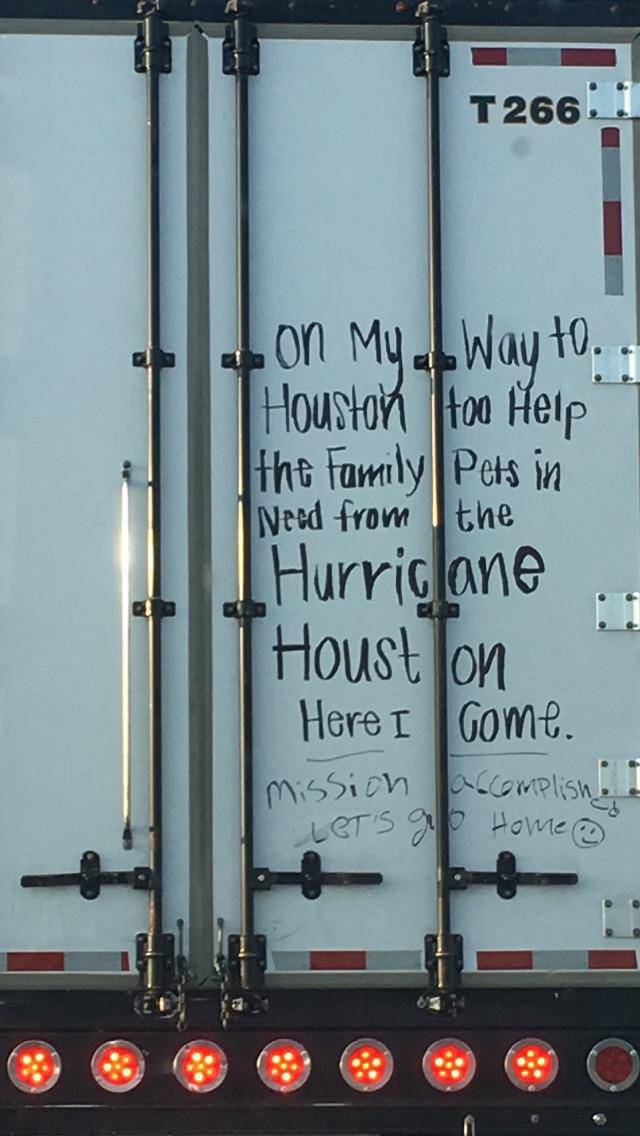 T266
on My Way to
Houston too Help
the Family Pets in
Need from the
Hurricane
Houston
Here I Come.
mission accomplished
LET'S go Home